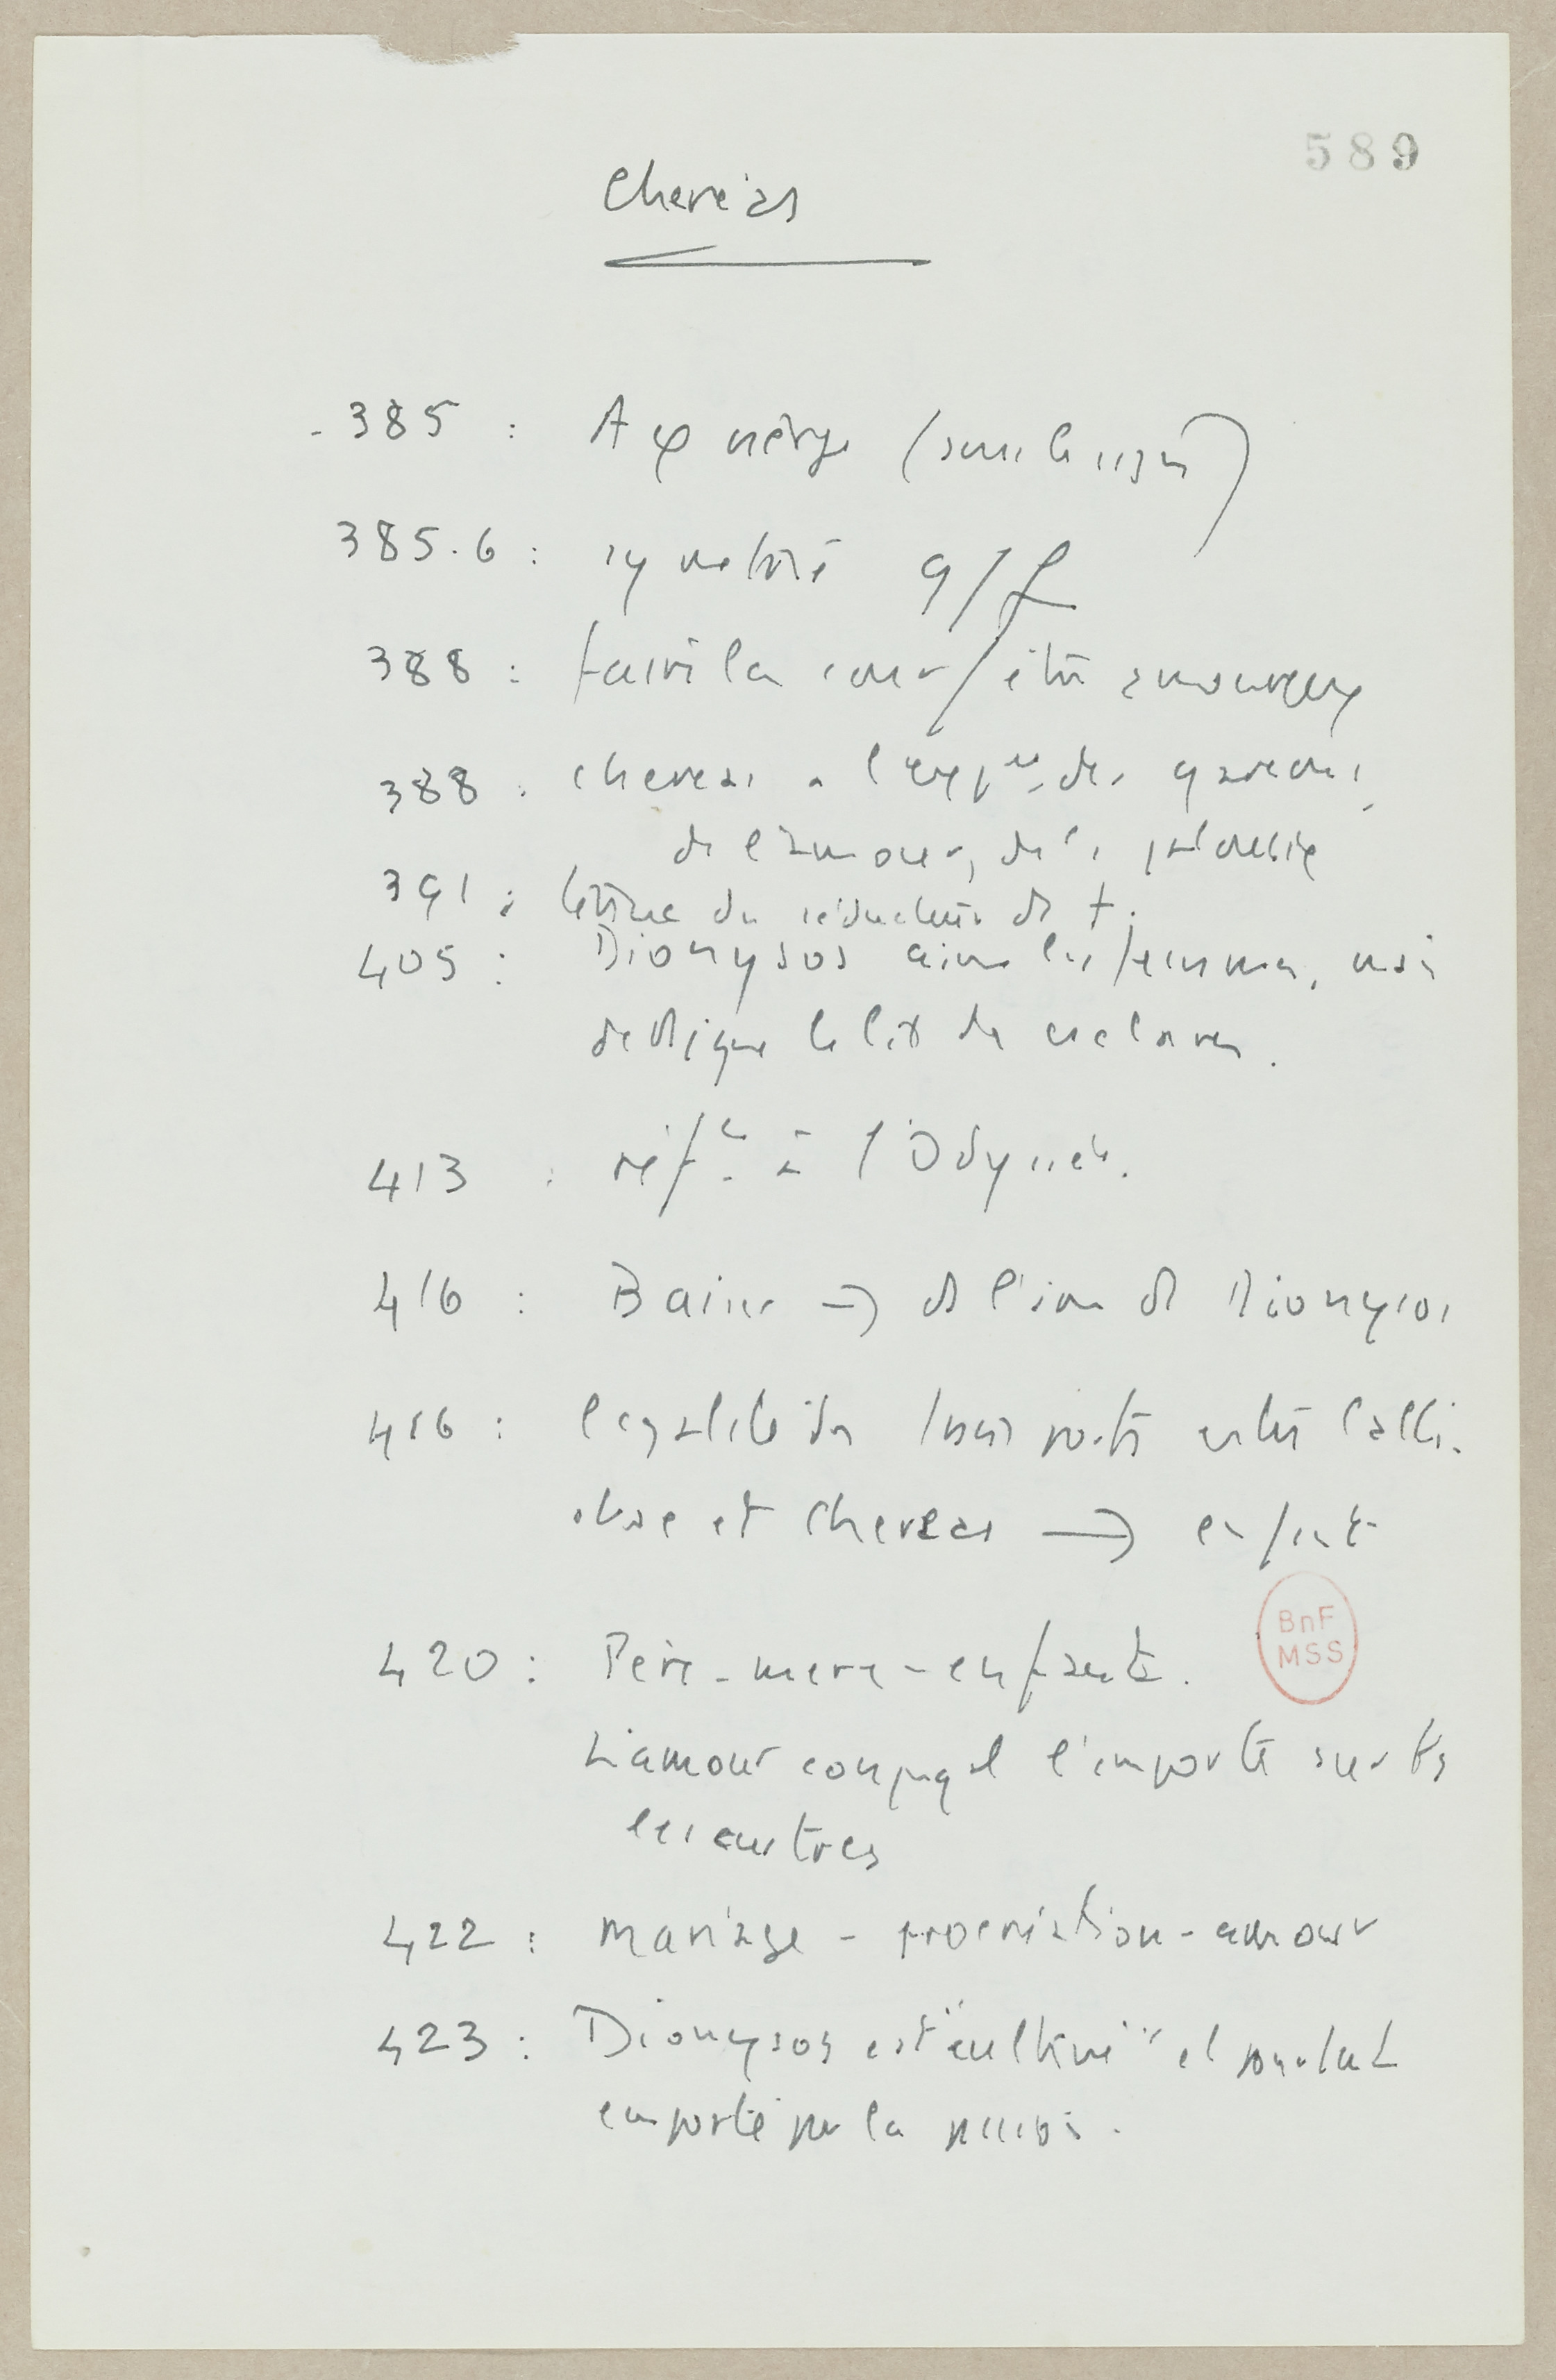 589
Chereas
- 385 : Aφ vierge
385.6 : symétrie g/f
388 : faire la cour/être amoureux
388 : Chereas a l'expce des garçons,
de l'amour, de la jalousie
391 : lettrine du séducteur de f.
405 : Dionysos aime les femmes, mais
dédaigne le lit des esclaves.
413 : réfce à l'Odyssée.
416 : Baiser → ds l'âme de Dionysos
416 : légalité des rapports entre Calli-
rhoe et Chereas → enfant
420 : Père - mere - enfants.
L'amour conjugal l'emporte sur ts
les autres
422 : Mariage - procréation - amour
423 : Dionysos est "cultivé" et pourtant
emporté par la passion.
BnF
MSS